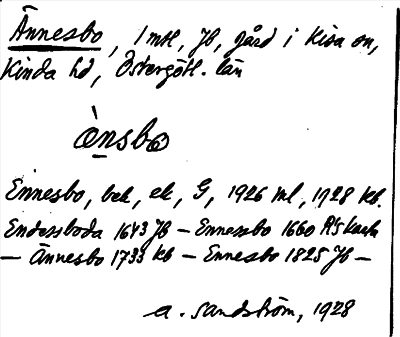 Ännesbo, 1 mtl, Jb, gård i Kisa sn,
Kinda hd, Östergötl. län
ànsbo
Ennesbo, bek, ek, G, 1926 ml, 1928 kb.
Endessboda 1643 Jb – Ennessbo 1660
– Ännesbo 1733 kb – Ennesbo 1825 Jb –
A. Sandström, 1928